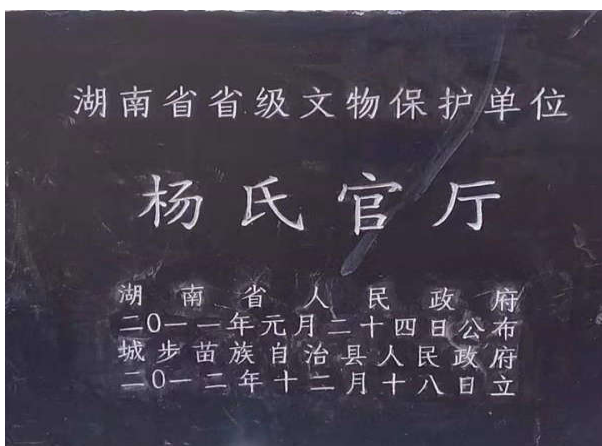 湖南省省级文物保护单位
杨氏官厅
湖南省人民政府
二0一一年元月二十四日公布
城步苗族自治县人民政府
二0一二年十二月十八日立